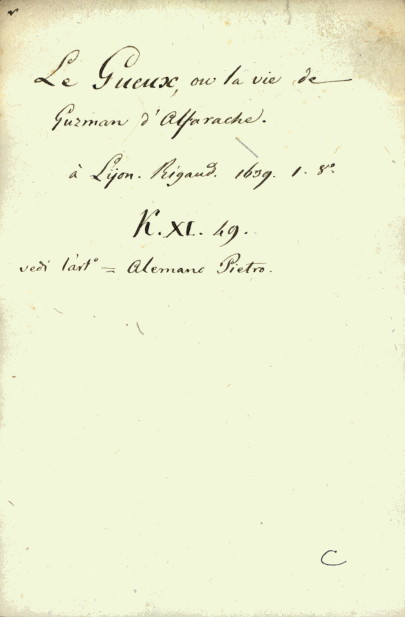 Le Gueux, ou la vie de
Guzman d'Alfarache.
à Lyon. Rigaud. 1639. 1. 8.º
K. XI. 49.
vedi l'art.º = Alemano Pietro.
C